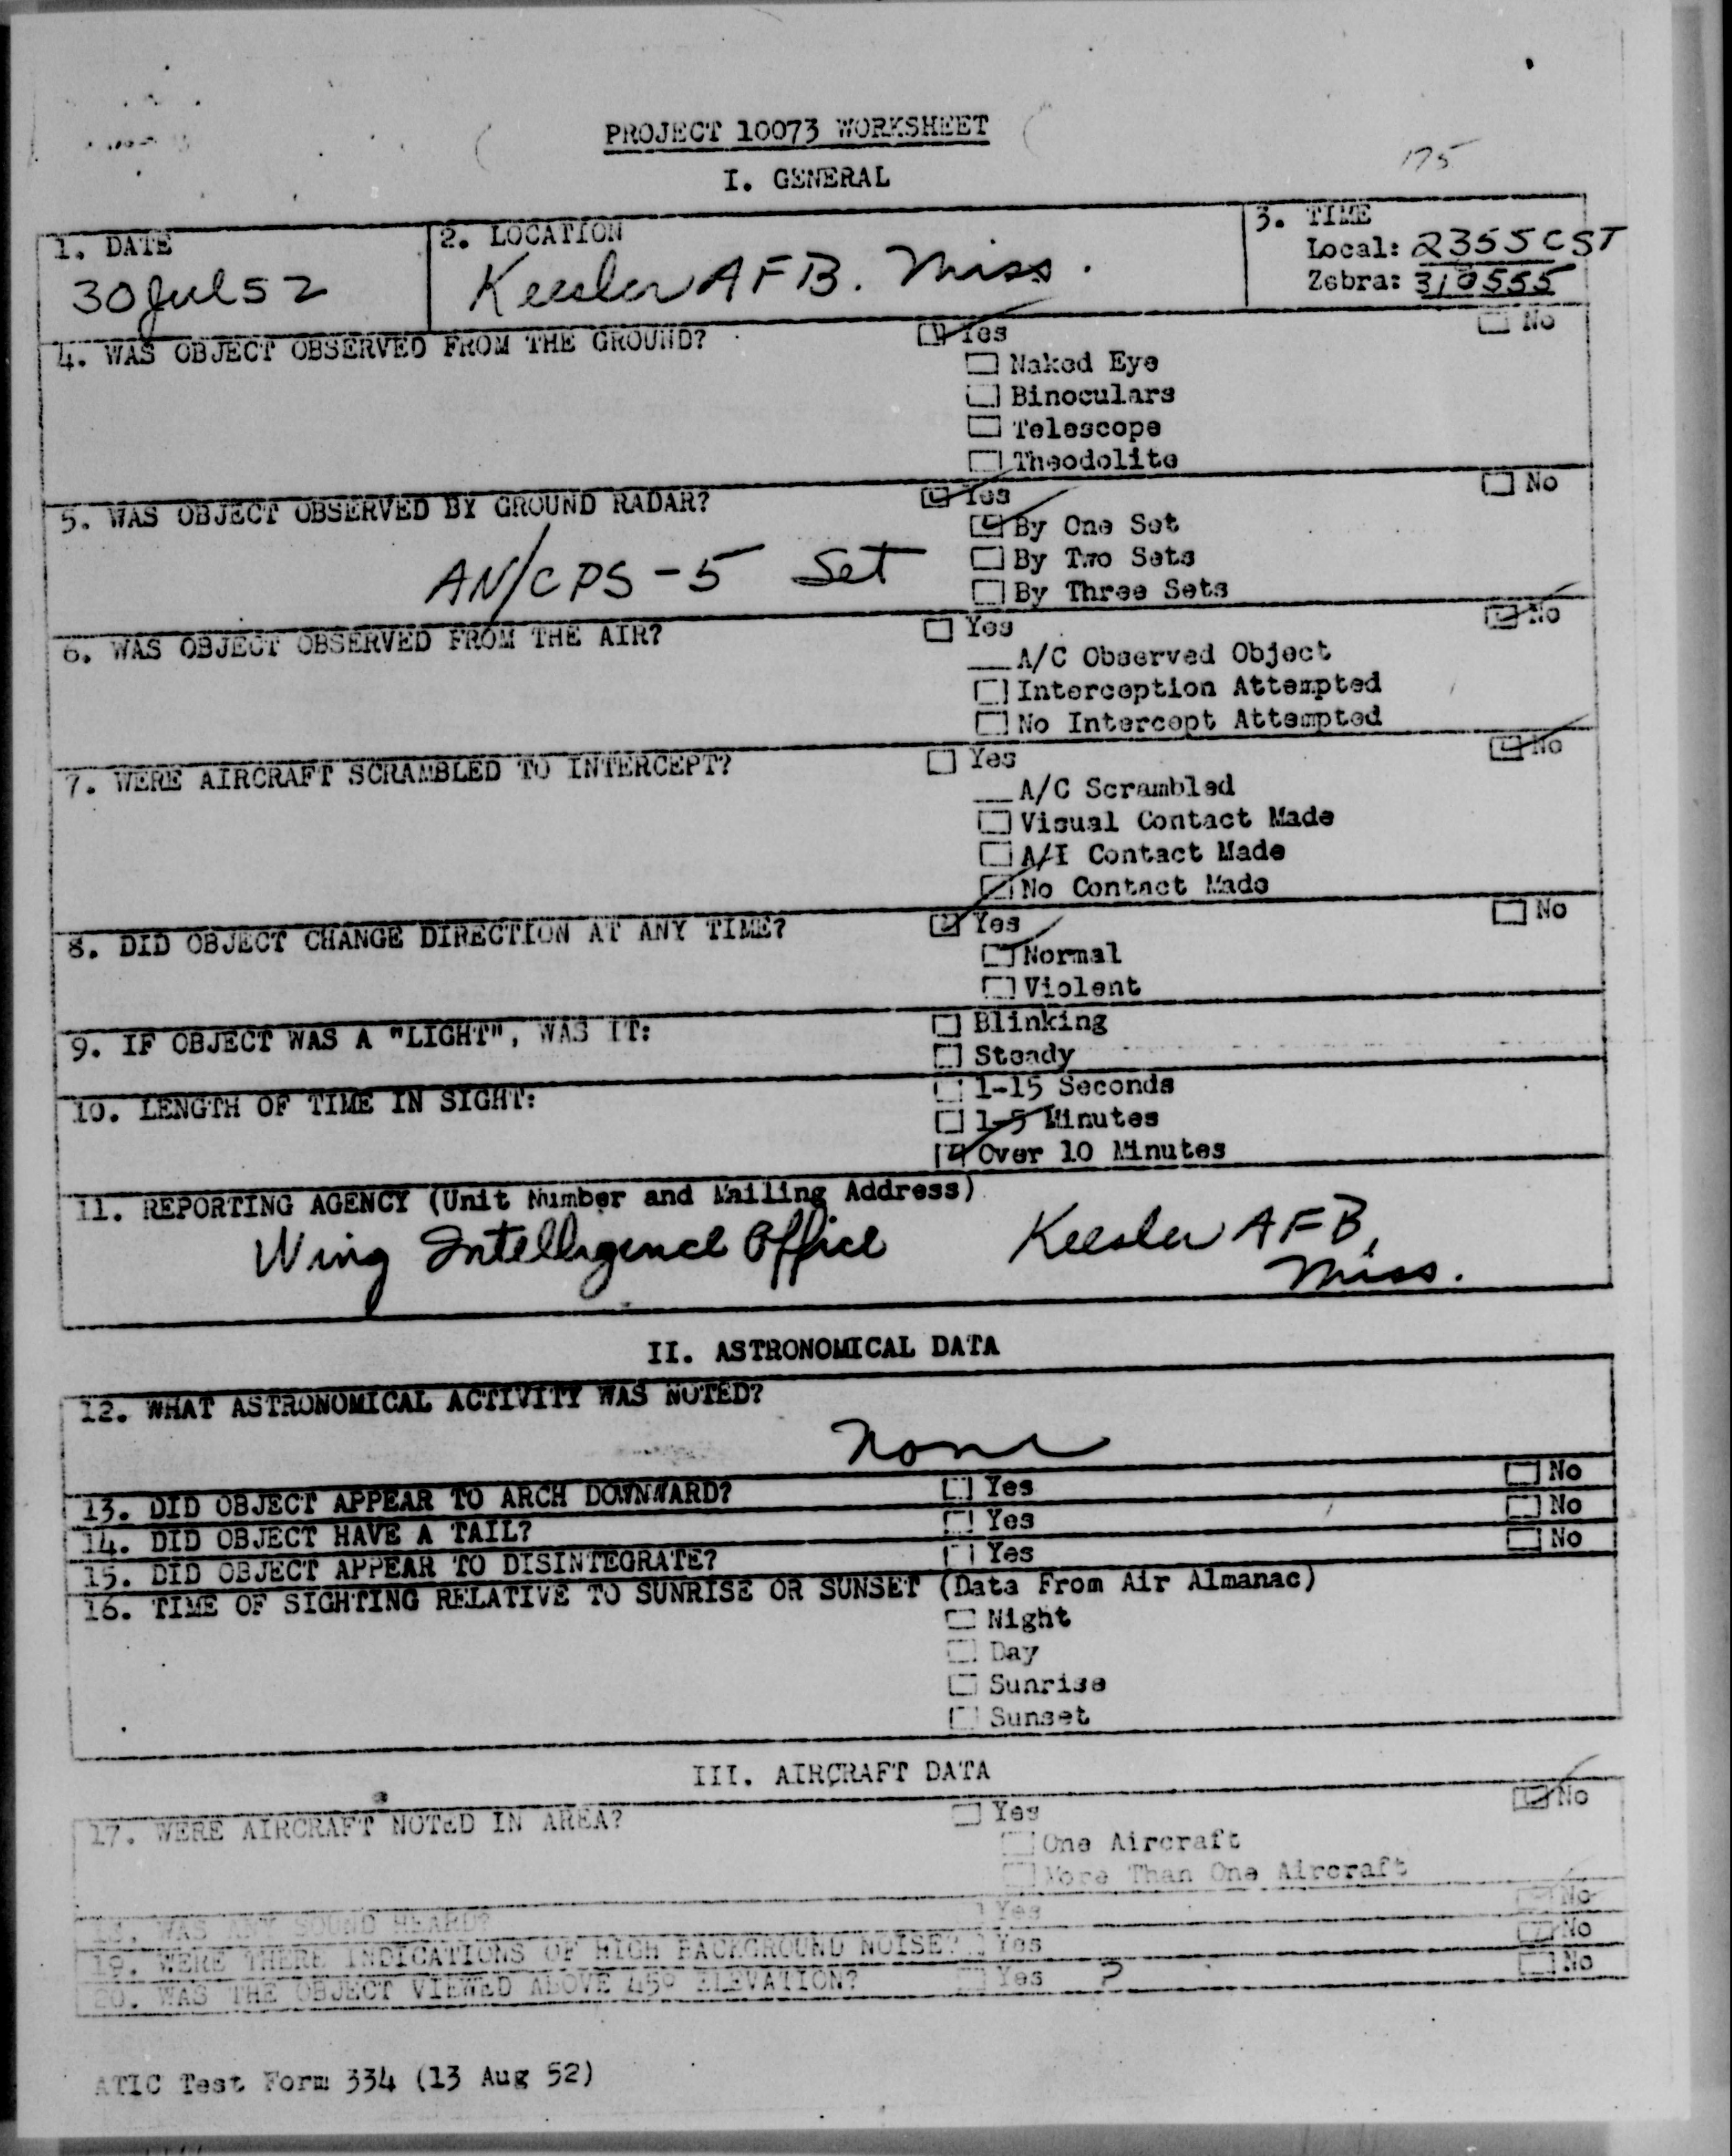 PROJECT 10073 WORKSHEET
175
I. GENERAL
1. DATE
30 Jul 52
2. LOCATION
Keesler AFB. Miss.
3. TIME
Local: 2355 CST
Zebra: 310555
4. WAS OBJECT OBSERVED FROM THE GROUND? Yes No
Naked Eye
Binoculars
Telescope
Theodolite
5. WAS OBJECT OBSERVED BY GROUND RADAR? Yes No
By One Set
AN/CPS-5 Set
By Two Sets
By Three Sets
6. WAS OBJECT OBSERVED FROM THE AIR? Yes No
A/C Observed Object
Interception Attempted
No Intercept Attempted
7. WERE AIRCRAFT SCRAMBLED TO INTERCEPT? Yes No
A/C Scrambled
Visual Contact Made
A/I Contact Made
No Contact Made
8. DID OBJECT CHANGE DIRECTION AT ANY TIME? Yes No
Normal
Violent
9. IF OBJECT WAS A "LIGHT", WAS IT: Blinking
Steady
10. LENGTH OF TIME IN SIGHT: 1-15 Seconds
1-5 Minutes
Over 10 Minutes
11. REPORTING AGENCY (Unit Number and Mailing Address)
Wing Intelligence Office Keesler AFB,
Miss.
II. ASTRONOMICAL DATA
12. WHAT ASTRONOMICAL ACTIVITY WAS NOTED?
None
13. DID OBJECT APPEAR TO ARCH DOWNWARD? Yes No
14. DID OBJECT HAVE A TAIL? Yes No
15. DID OBJECT APPEAR TO DISINTEGRATE? Yes No
16. TIME OF SIGHTING RELATIVE TO SUNRISE OR SUNSET (Data From Air Almanac)
Night
Day
Sunrise
Sunset
III. AIRCRAFT DATA
17. WERE AIRCRAFT NOTED IN AREA? Yes No
One Aircraft
More Than One Aircraft
18. WAS ANY SOUND HEARD? Yes No
19. WERE THERE INDICATIONS OF HIGH BACKGROUND NOISE? Yes No
20. WAS THE OBJECT VIEWED ABOVE 45° ELEVATION? Yes ? No
ATIC Test Form 334 (13 Aug 52)